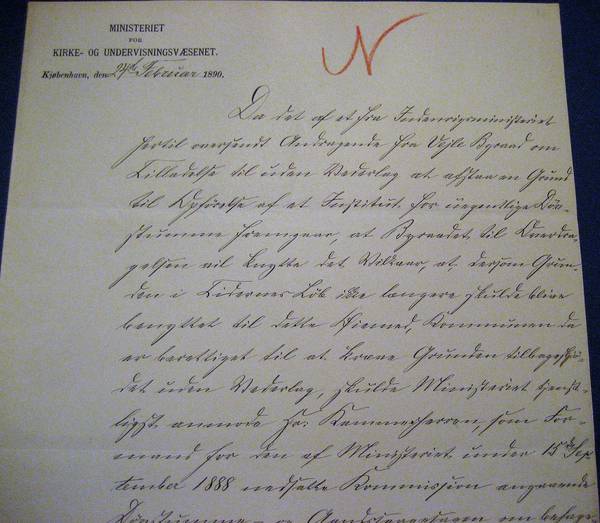 MINISTERIET
FOR
KIRKE- OG UNDERVISNINGSVÆSENET.
Kjøbenhavn, den 24de Februar 1890.
N
Da det af et fra Indenrigsministeriet
hertil oversendt Andragende fra Vejle Byraad om
Tilladelse til uden Vederlag at afstaa en Grund
til Opførelse af et Institut for uegentlige Døv-
stumme fremgaar, at Byraadet til Overdra-
gelsen vil knytte det Vilkaar, at dersom Grun-
den i Tidernes Løb ikke længere skulde blive
benyttet til dette Øiemed, Kommunen da
er berettiget til at kræve Grunden tilbageskjø-
det uden Vederlag, skulde Ministeriet tjenst-
ligst anmode Hr. Kammerherren, som For-
mand for den af Ministeriet under 15de Sep-
tember 1888 nedsatte Kommission angaaende
Døvstumme- og Aandssvagesagen om behage